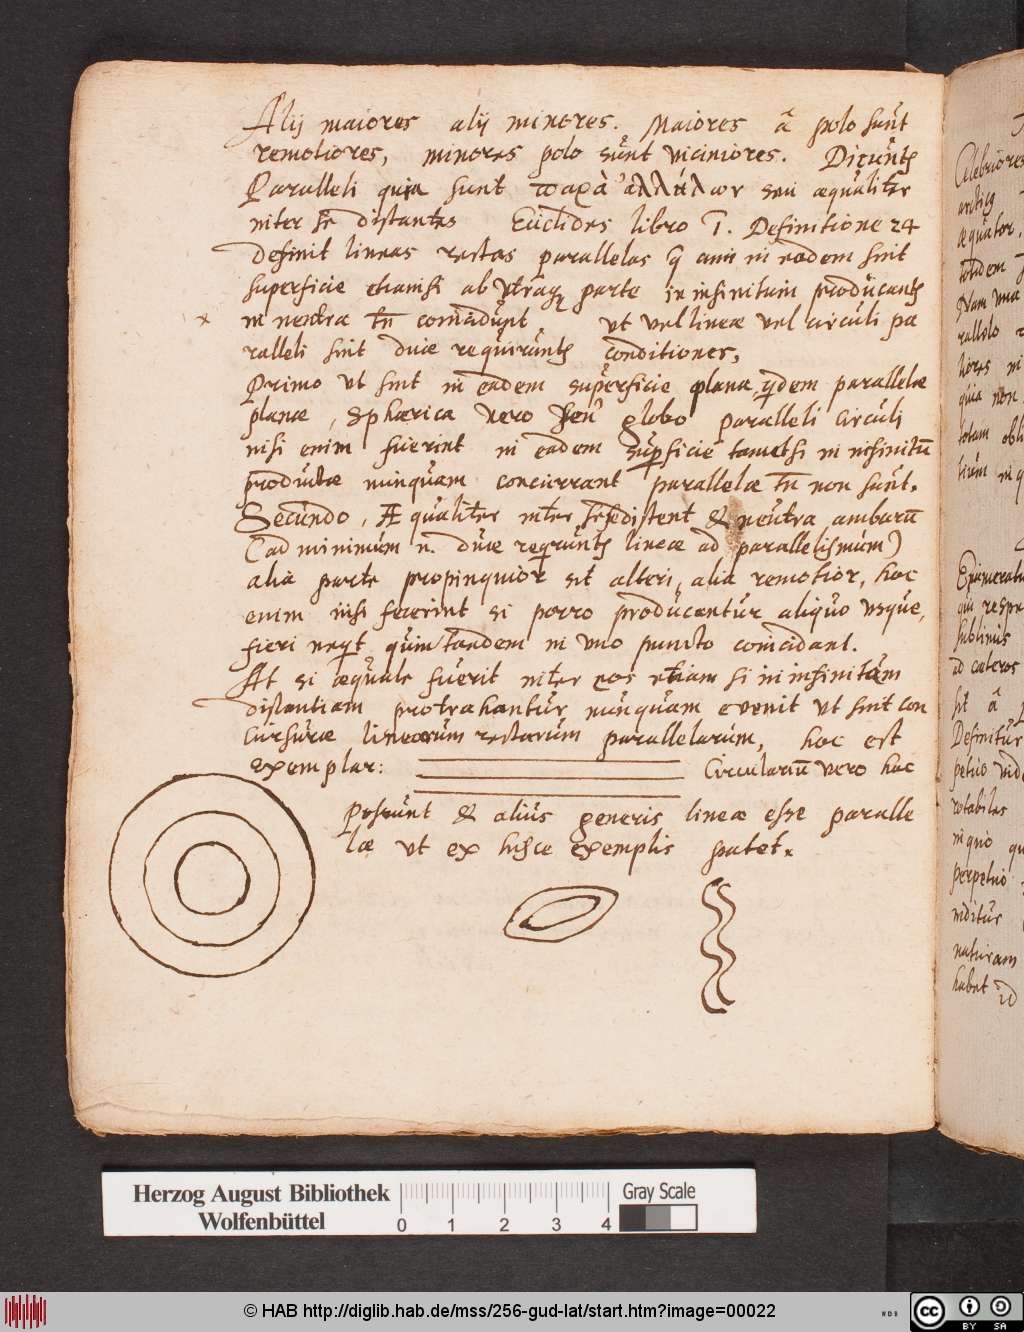 Alij maiores alij minores. Maiores ā polo sunt
remotiores, minores polo sunt viciniores. Dicunt᷒
Paralleli quia sunt παρὰ ἀλλήλων seu æqualiter
inter se distantes Euclides libro 1. Definitione 24
definit lineas rectas parallelas q̄ cum in eadem sint
superficie etiamsi ab utraq; parte in infinitum producant᷒
x in neutra tn̄ coincidunt ut vel lineæ vel circuli pa
ralleli sint duæ requirunt᷒ conditiones,
Primo ut sint in eadem superficie plana qdem parallelæ
planæ, sphærica vero seu globo paralleli circuli
nisi enim fuerint in eadem supficie tametsi in infinitū
productæ nunquam concurrant parallelæ tn̄ non sunt.
Secundo, Æqualiter inter se distent & neutra ambarū
(ad minimum n. duæ requirunt᷒ lineæ ad parallelismum)
alia parte propinquior sit alteri, alia remotior, hoc
enim nisi fecerint si porro producantur aliquo usque,
fieri neqt quin tandem in uno puncto coincidant.
At si æquale fuerit inter eos etiam si in infinitam
distantiam protrahantur nunquam evenit ut sint con
cursuræ linearum rectarum parallelarum, hoc est
exemplar: Circulariū vero hoc
Possunt & alius generis lineæ esse paralle
læ ut ex hisce exemplis patet.
Celebriores
æquator,
totidem
Nam una
rallelo
quia non
totam obli
Enumeratu
sublimis
ad cæteros
sit ā
Definitur
petuo
rotabiles
in quo qu
perpetuo
naturam
habet
Herzog August Bibliothek
Wolfenbüttel
0 1 2 3 4
Gray Scale
© HAB http://diglib.hab.de/mss/256-gud-lat/start.htm?image=00022
WDB
cc BY SA